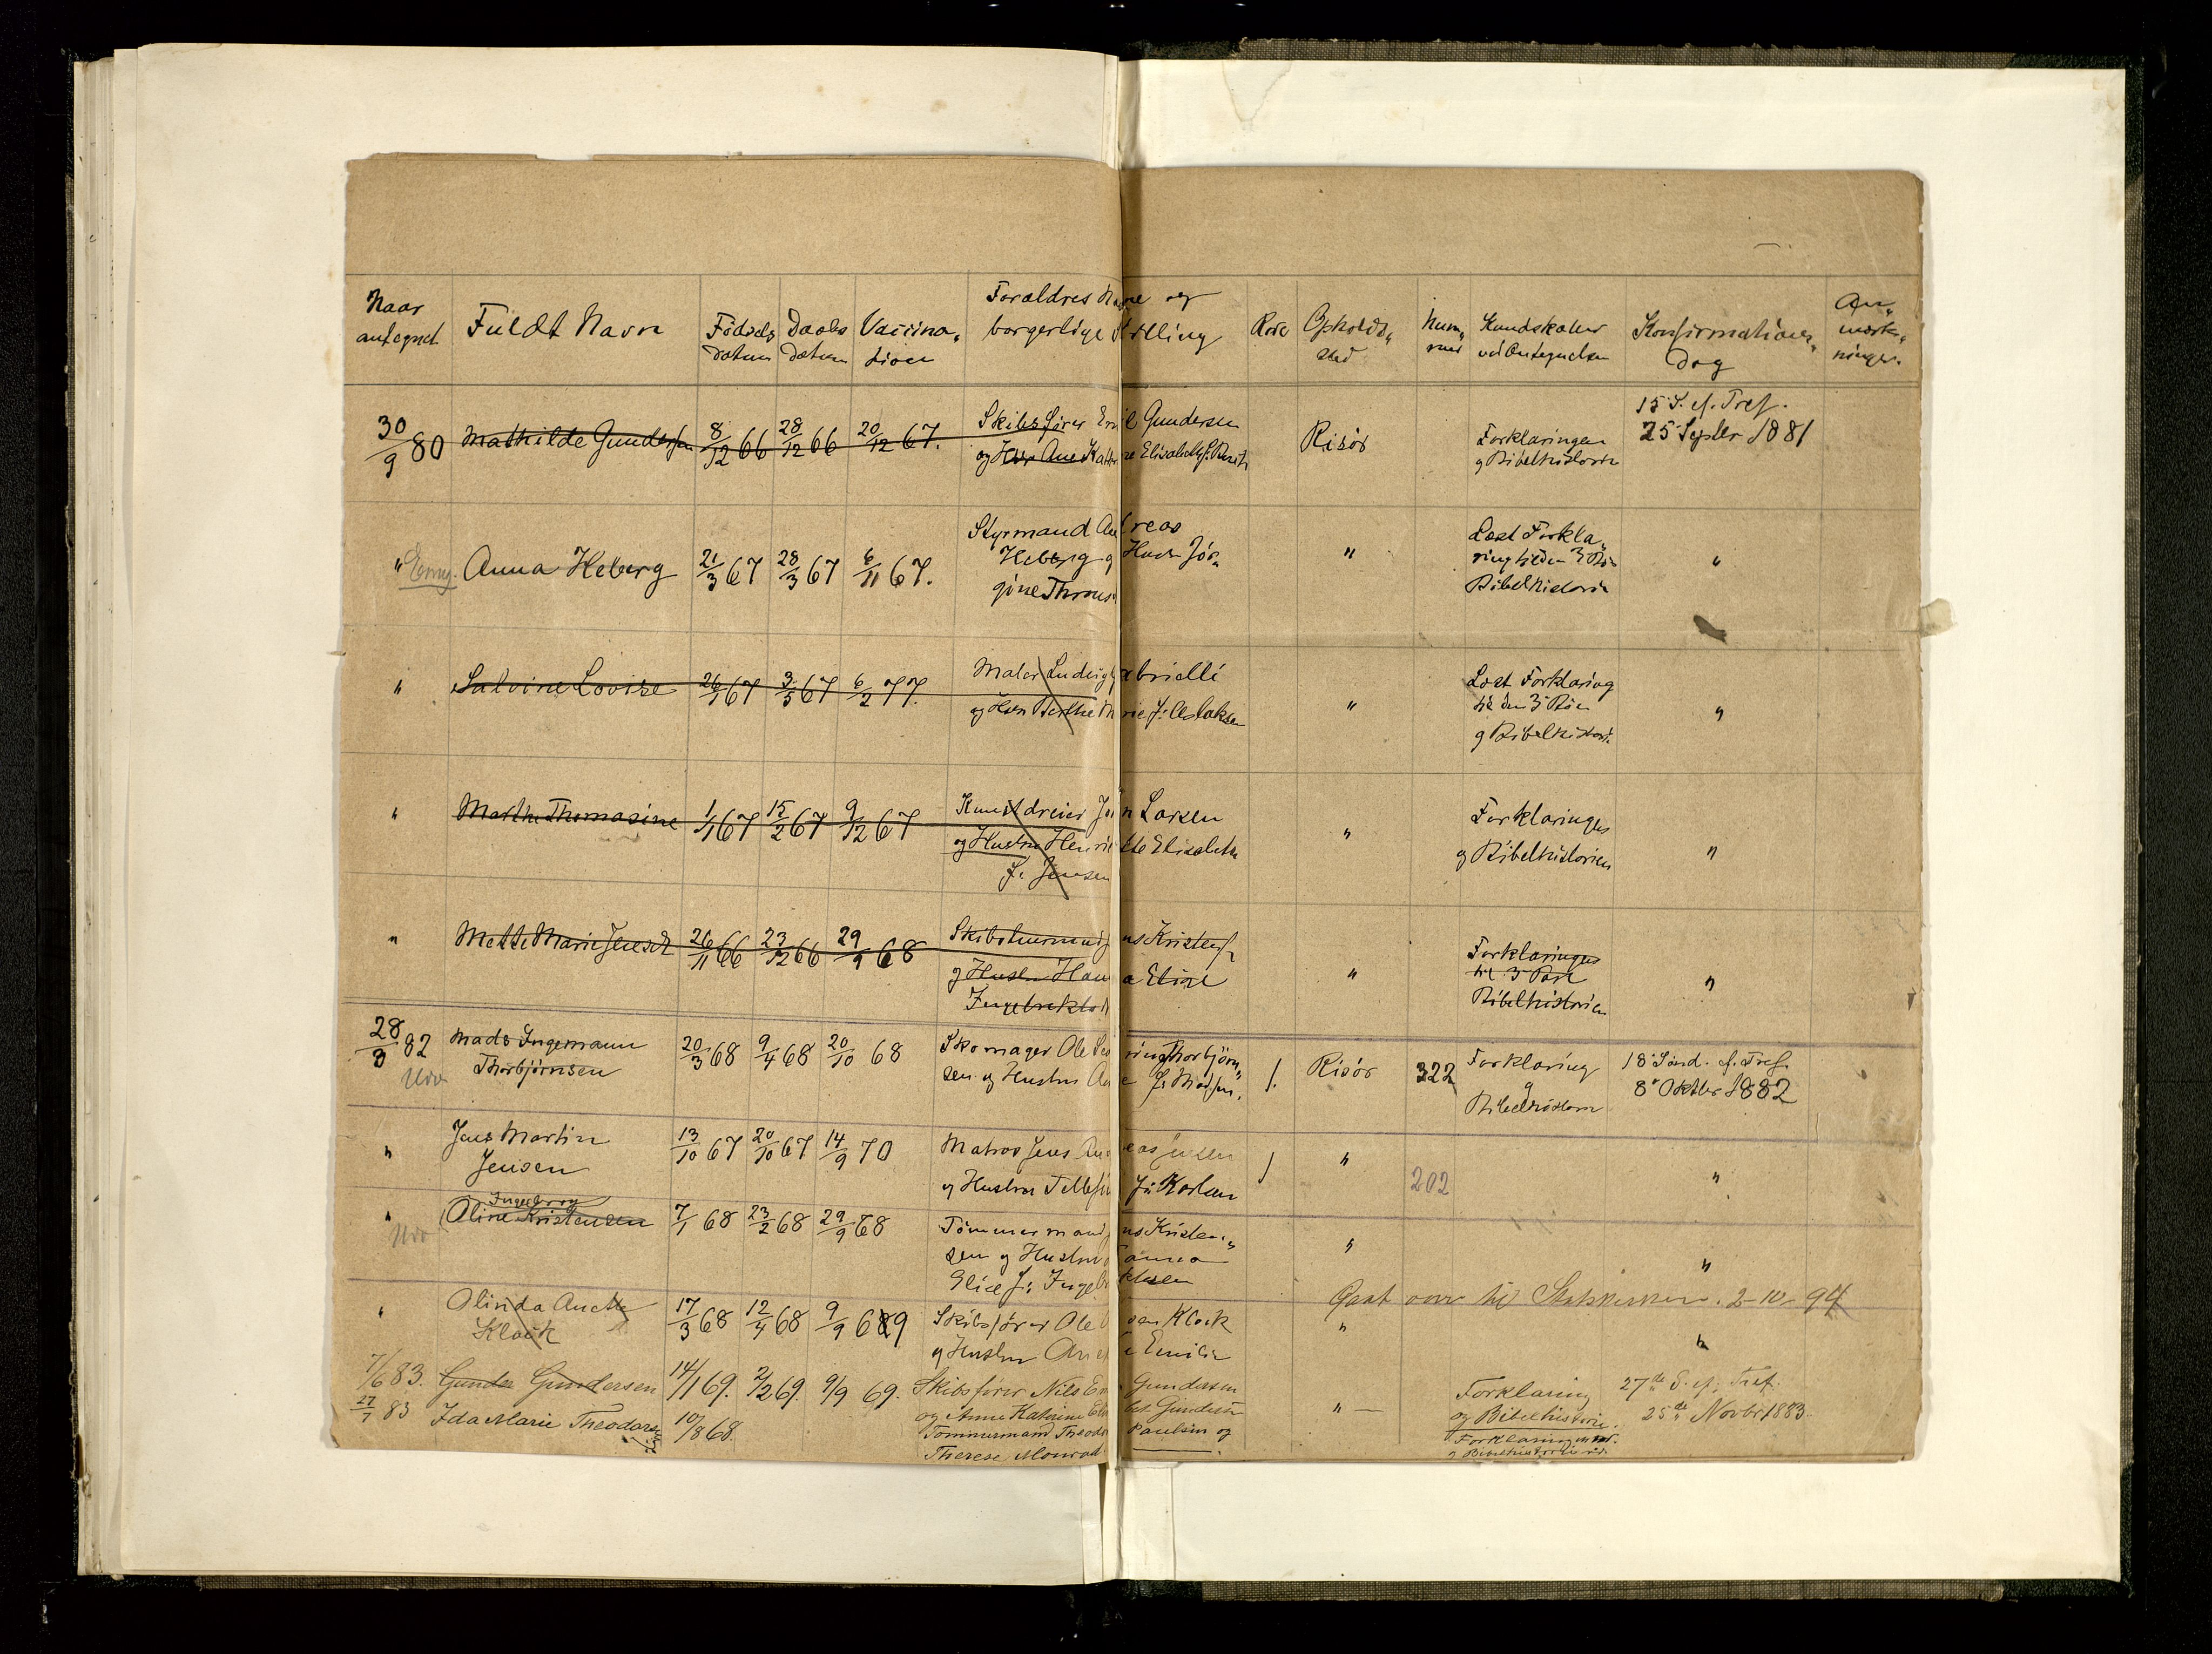 Naar
antegnet
Fuldt Navn
Födsels
datum
Daabs
datum
Vaccina„
tion
Forældres Navne og
borgerlige Stilling
Rode
Opholds„
sted
Num„
mer
Kundskaber
ved Antegnelsen
Konfirmations„
dag
An„
mærk„
ninger.
30/9 80
Mathilde Gundersen
8/12 66
28/12 66
20/12 67.
Skibsfører Emil Gundersen
og Hstr Ane Kathrine Elisabeth f.
Risör
Forklaringen
og Bibelhistorie
15 S. ef. Tref.
25 Septbr 1881
" Emg.
Anna Heberg
21/3 67
28/3 67
6/11 67.
Styrmand Andreas
Heberg og Hustr Jör„
gine Thrones
"
Læst Forkla„
ring til den 3 
Bibelhistorie
"
"
Salvine Lovise
26/1 67
3/5 67
6/2 77.
Maler Ludvig Gabrielli
og Hstr Berthe Marie f: Aslaksen
"
Læst Forklaring
til den 3
og Bibelhistori.
"
"
Marthe Thomasine
1/1 67
15/2 67
9/12 67
Kunstdreier Jön Larsen
og Hustru Henriette Elisabeth
f. Jensen
"
Forklaringen
og Bibelhistorien
"
"
Mette Marie Jensen
26/11 66
23/12 66
29/9 68
Skibstømmerm Jens Kristens„
og Hustru Hanna Elise
Ingebrektsd
"
Forklaringen
til 3 Part
Bibelhistorien
"
28/3 82
Mads Ingemann
Thorbjörnsen
20/3 68
9/4 68
20/10 68
Skomager Ole Severin Thorbjörn„
sen og Hustru Ane f: Madsen.
1.
Risör
322
Forklaring
og
Bibelhistorie
18 Sönd. ef. Tref.
8 Oktbr 1882
"
Jens Martin
Jensen
13/10 67
20/10 67
14/9 70
Matros Jens Andreas Jensen
og Hustru Tellefine f: Karlsen
1
"
202
"
"
Ingeborg
Oline Kristensen
7/1 68
23/2 68
29/9 68
Tömmermand Jens Kristen„
sen og Hustru Hanna
Elise f: Ingebrektsen
"
"
Gaat over til Statskirken. 2-10-94
"
Olinda Anette
Klock
17/3 68
12/4 68
9/9 69
Skibsfører Ole Olsen Klock
og Hustru Anette Emilie
"
"
7/6 83.
Gunder Gundersen
14/11 69.
2/12 69.
9/9 69.
Skibsfører Nils Emil Gundersen
og Anne Katrine Elisabet Gundersen
" —
Forklaring
og Bibelhistorie.
27de S. ef: Tref.
25de Novbr 1883.
27/7 83
Ida Marie Theodorsen
10/8 68.
Tömmermand Theodor Paulsen og
Therese Monrad
Forklaringen
og Bibelhistorie